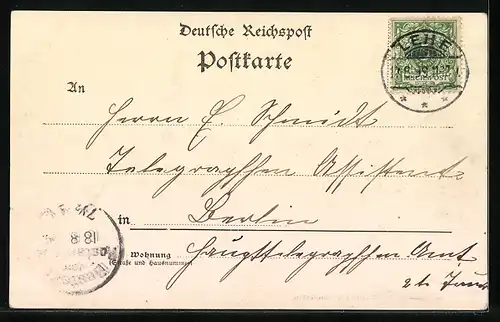 Deutsche Reichspost
Postkarte
LEHE
REICHSPOST
An
Herrn E. Schmidt
Telegraphen Assistent
in Berlin
Wohnung
(Straße und Hausnummer)
Haupttelegraphen Amt
18 8